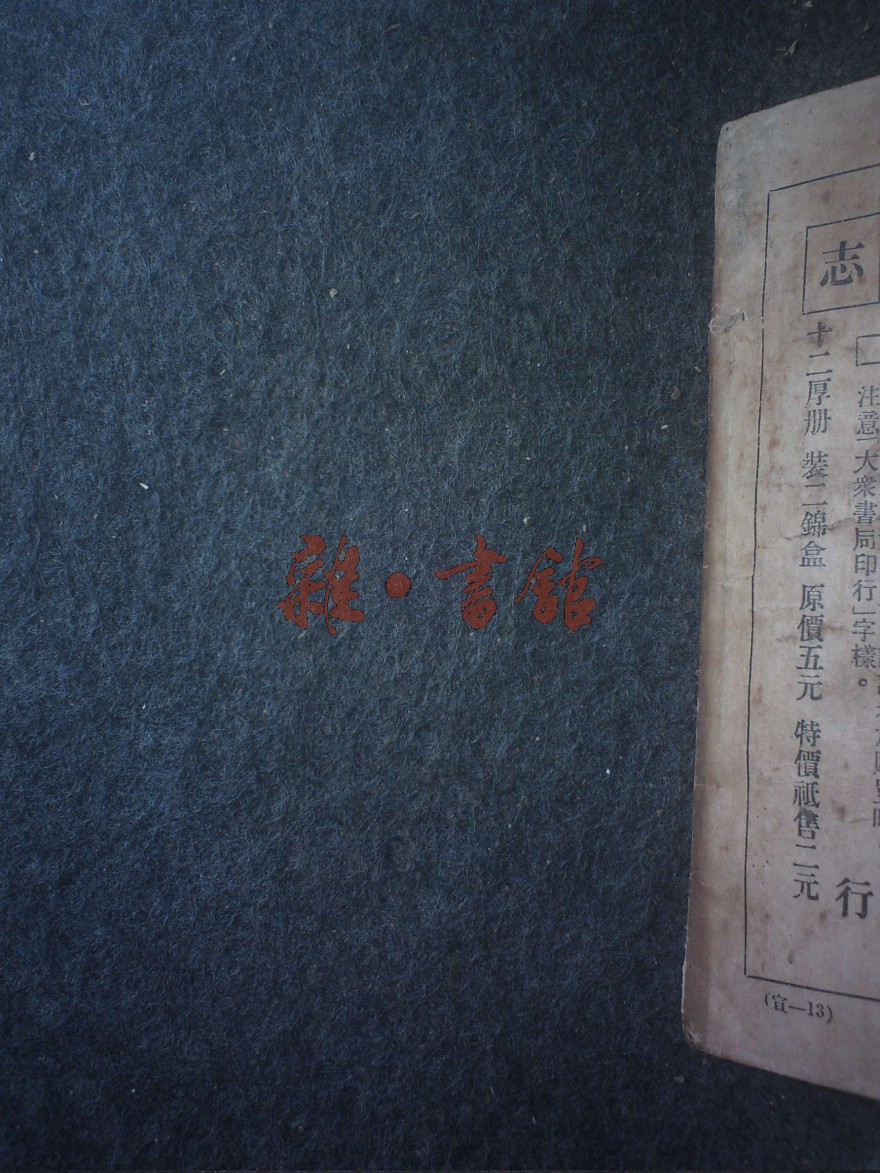 志
注意「大衆書局印行」字樣。
行
十二厚册 裝二錦盒 原價五元 特價祗售二元
(宣—13)
雜·書館